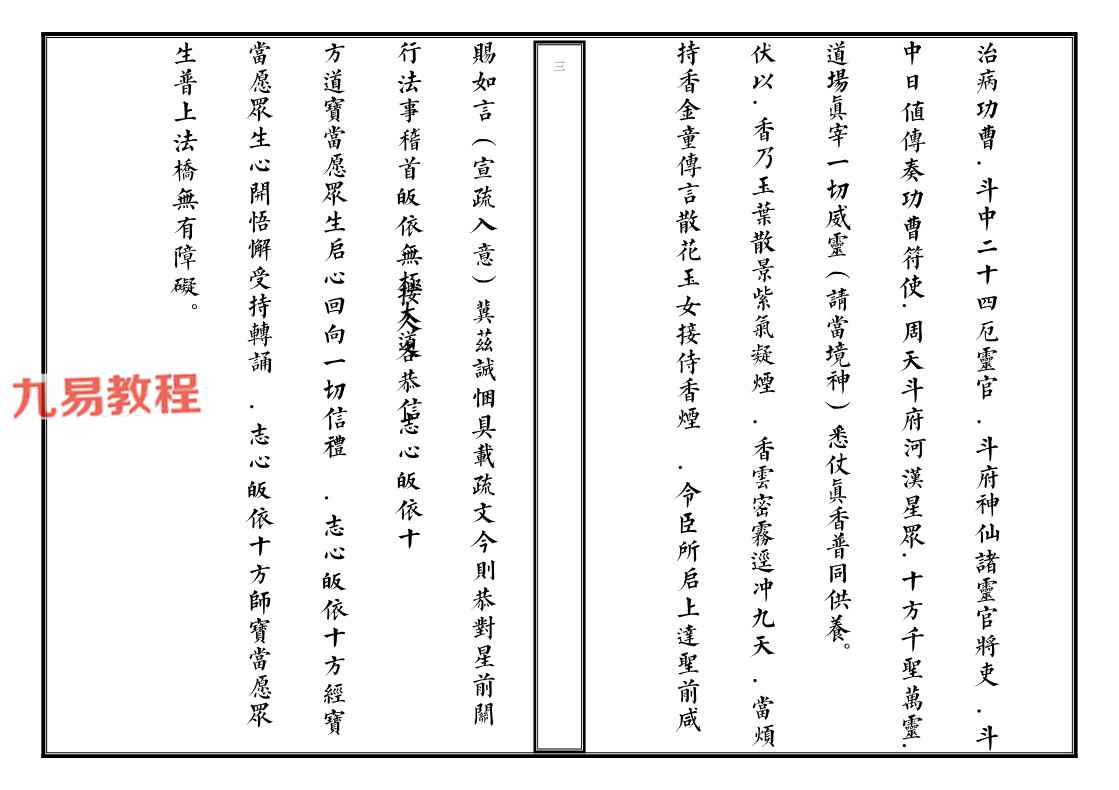 治病功曹.斗中二十四厄靈官.斗府神仙諸靈官將吏.斗
中日值傳奏功曹符使.周天斗府河漢星眾.十方千聖萬靈.
道場眞宰一切威靈(請當境神)悉仗眞香普同供養。
伏以.香乃玉葉散景紫氣凝煙.香雲密霧逕冲九天.當煩
持香金童傳言散花玉女接侍香煙.令臣所启上達聖前咸
三
賜如言(宣疏入意)冀茲誠悃具載疏文今則恭對星前關
行法事稽首皈依無極大道恭信志心皈依十
方道寶當愿眾生启心回向一切信禮.志心皈依十方經寶
當愿眾生心開悟懈受持轉誦.志心皈依十方師寶當愿眾
生普上法橋無有障礙。
九易教程